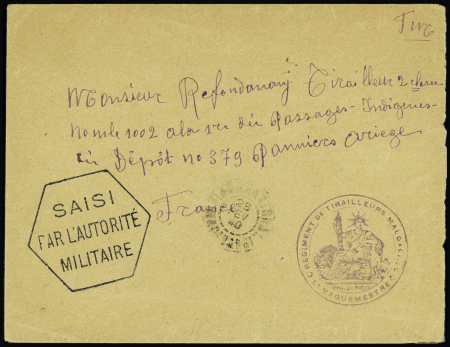 Monsieur Refondanany Tirailleur 2 classe
No mle 1002 a la 1re du Passages-Indigenes-
du Dépôt no 379 Panniers Ariege
France
SAISI
PAR L'AUTORITÉ
MILITAIRE
REGIMENT DE TIRAILLEURS MALGACHES
LE VAGUEMESTRE